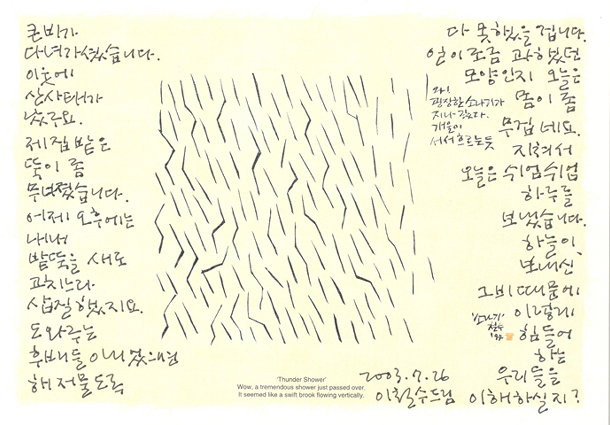 큰비가
다녀가셨습니다.
이웃에
산사태가
났구요.
제 집 밭은
뚝이 좀
무너졌습니다.
어제 오후에는
내내
밭뚝을 새로
고치느라
삽질 했지요.
도와주는
후배들이 네 명이
해 저물도록
다 못했을 겁니다.
일이 조금 과했던
모양인지 오늘은
몸이 좀
무겁네요.
지쳐서
오늘은 쉬엄쉬엄
하루를
보냈습니다.
하늘이,
보내신
그 비 때문에
이렇게
힘들어
하는
우리들을
이해하실지?
와!
굉장한 소나기가
지나갔다.
개울이
서서 흐르는 듯
'소나기'
철수
'Thunder Shower'
Wow, a tremendous shower just passed over.
It seemed like a swift brook flowing vertically.
2003.7.26
이철수 드림